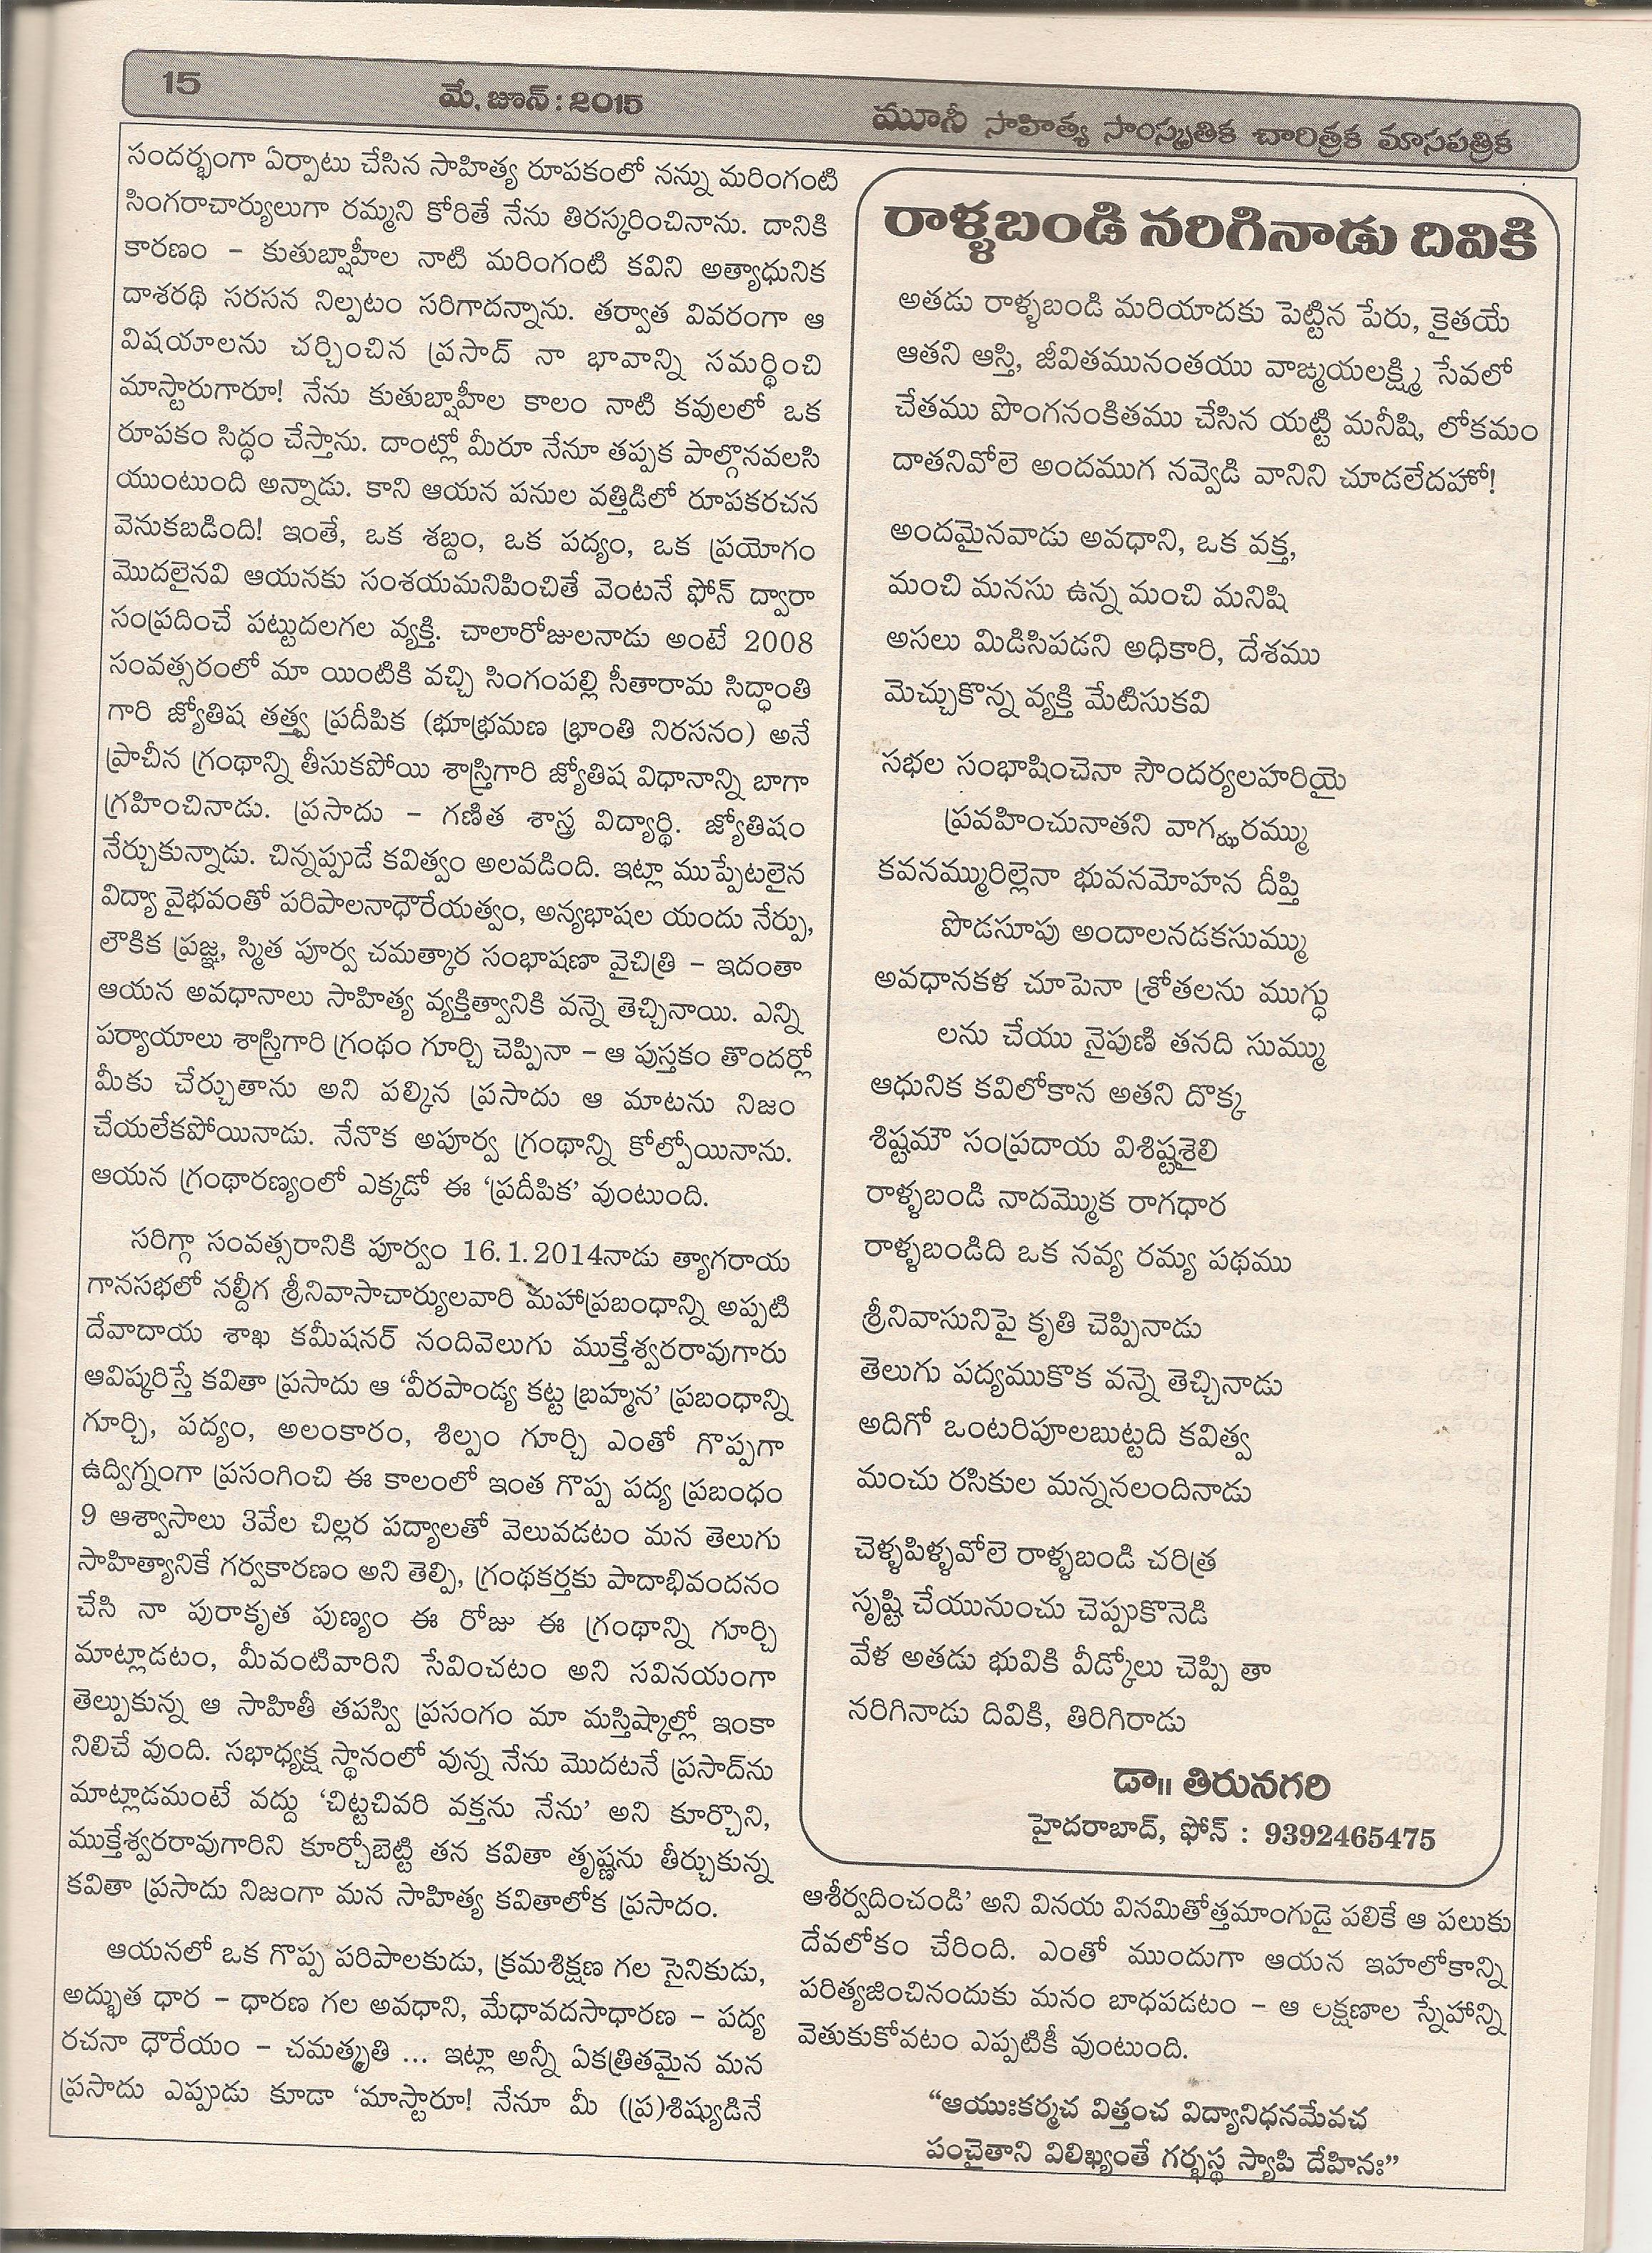 15
మే, జూన్ : 2015
మూసీ సాహిత్య సాంస్కృతిక చారిత్రక మాసపత్రిక
సందర్భంగా ఏర్పాటు చేసిన సాహిత్య రూపకంలో నన్ను మరింగంటి
సింగరాచార్యులుగా రమ్మని కోరితే నేను తిరస్కరించినాను. దానికి
కారణం – కుతుబ్షాహీల నాటి మరింగంటి కవిని అత్యాధునిక
దాశరథి సరసన నిల్పటం సరిగాదన్నాను. తర్వాత వివరంగా ఆ
విషయాలను చర్చించిన ప్రసాద్ నా భావాన్ని సమర్థించి
మాస్టారుగారూ! నేను కుతుబ్షాహీల కాలం నాటి కవులలో ఒక
రూపకం సిద్ధం చేస్తాను. దాంట్లో మీరూ నేనూ తప్పక పాల్గొనవలసి
యుంటుంది అన్నాడు. కాని ఆయన పనుల వత్తిడిలో రూపకరచన
వెనుకబడింది! ఇంతే, ఒక శబ్దం, ఒక పద్యం, ఒక ప్రయోగం
మొదలైనవి ఆయనకు సంశయమనిపించితే వెంటనే ఫోన్ ద్వారా
సంప్రదించే పట్టుదలగల వ్యక్తి. చాలారోజులనాడు అంటే 2008
సంవత్సరంలో మా యింటికి వచ్చి సింగంపల్లి సీతారామ సిద్ధాంతి
గారి జ్యోతిష తత్త్వ ప్రదీపిక (భూభ్రమణ భ్రాంతి నిరసనం) అనే
ప్రాచీన గ్రంథాన్ని తీసుకపోయి శాస్త్రిగారి జ్యోతిష విధానాన్ని బాగా
గ్రహించినాడు. ప్రసాదు – గణిత శాస్త్ర విద్యార్థి. జ్యోతిషం
నేర్చుకున్నాడు. చిన్నప్పుడే కవిత్వం అలవడింది. ఇట్లా ముప్పేటలైన
విద్యా వైభవంతో పరిపాలనాధౌరేయత్వం, అన్యభాషల యందు నేర్పు,
లౌకిక ప్రజ్ఞ, స్మిత పూర్వ చమత్కార సంభాషణా వైచిత్రి – ఇదంతా
ఆయన అవధానాలు సాహిత్య వ్యక్తిత్వానికి వన్నె తెచ్చినాయి. ఎన్ని
పర్యాయాలు శాస్త్రిగారి గ్రంథం గూర్చి చెప్పినా – ఆ పుస్తకం తొందర్లో
మీకు చేర్చుతాను అని పల్కిన ప్రసాదు ఆ మాటను నిజం
చేయలేకపోయినాడు. నేనొక అపూర్వ గ్రంథాన్ని కోల్పోయినాను.
ఆయన గ్రంథారణ్యంలో ఎక్కడో ఈ ‘ప్రదీపిక’ వుంటుంది.
సరిగ్గా సంవత్సరానికి పూర్వం 16.1.2014నాడు త్యాగరాయ
గానసభలో నల్దీగ శ్రీనివాసాచార్యులవారి మహాప్రబంధాన్ని అప్పటి
దేవాదాయ శాఖ కమీషనర్ నందివెలుగు ముక్తేశ్వరరావుగారు
ఆవిష్కరిస్తే కవితా ప్రసాదు ఆ ‘వీరపాండ్య కట్ట బ్రహ్మన’ ప్రబంధాన్ని
గూర్చి, పద్యం, అలంకారం, శిల్పం గూర్చి ఎంతో గొప్పగా
ఉద్విగ్నంగా ప్రసంగించి ఈ కాలంలో ఇంత గొప్ప పద్య ప్రబంధం
9 ఆశ్వాసాలు 3వేల చిల్లర పద్యాలతో వెలువడటం మన తెలుగు
సాహిత్యానికే గర్వకారణం అని తెల్పి, గ్రంథకర్తకు పాదాభివందనం
చేసి నా పురాకృత పుణ్యం ఈ రోజు ఈ గ్రంథాన్ని గూర్చి
మాట్లాడటం, మీవంటివారిని సేవించటం అని సవినయంగా
తెల్పుకున్న ఆ సాహితీ తపస్వి ప్రసంగం మా మస్తిష్కాల్లో ఇంకా
నిలిచే వుంది. సభాధ్యక్ష స్థానంలో వున్న నేను మొదటనే ప్రసాద్‌ను
మాట్లాడమంటే వద్దు ‘చిట్టచివరి వక్తను నేను’ అని కూర్చొని,
ముక్తేశ్వరరావుగారిని కూర్చోబెట్టి తన కవితా తృష్ణను తీర్చుకున్న
కవితా ప్రసాదు నిజంగా మన సాహిత్య కవితాలోక ప్రసాదం.
ఆయనలో ఒక గొప్ప పరిపాలకుడు, క్రమశిక్షణ గల సైనికుడు,
అద్భుత ధార – ధారణ గల అవధాని, మేధావదసాధారణ – పద్య
రచనా ధౌరేయం – చమత్కృతి ... ఇట్లా అన్నీ ఏకత్రితమైన మన
ప్రసాదు ఎప్పుడు కూడా ‘మాస్టారూ! నేనూ మీ (ప్ర)శిష్యుడినే
రాళ్ళబండి నరిగినాడు దివికి
అతడు రాళ్ళబండి మరియాదకు పెట్టిన పేరు, కైతయే
ఆతని ఆస్తి, జీవితమునంతయు వాఙ్మయలక్ష్మి సేవలో
చేతము పొంగనంకితము చేసిన యట్టి మనీషి, లోకమం
దాతనివోలె అందముగ నవ్వెడి వానిని చూడలేదహో!
అందమైనవాడు అవధాని, ఒక వక్త,
మంచి మనసు ఉన్న మంచి మనిషి
అసలు మిడిసిపడని అధికారి, దేశము
మెచ్చుకొన్న వ్యక్తి మేటిసుకవి
సభల సంభాషించెనా సౌందర్యలహరియై
ప్రవహించునాతని వాగ్ఝరమ్ము
కవనమ్మురిల్లెనా భువనమోహన దీప్తి
పొడసూపు అందాలనడకసుమ్ము
అవధానకళ చూపెనా శ్రోతలను ముగ్ధు
లను చేయు నైపుణి తనది సుమ్ము
ఆధునిక కవిలోకాన అతని దొక్క
శిష్టమౌ సంప్రదాయ విశిష్టశైలి
రాళ్ళబండి నాదమ్మొక రాగధార
రాళ్ళబండిది ఒక నవ్య రమ్య పథము
శ్రీనివాసునిపై కృతి చెప్పినాడు
తెలుగు పద్యముకొక వన్నె తెచ్చినాడు
అదిగో ఒంటరిపూలబుట్టది కవిత్వ
మంచు రసికుల మన్ననలందినాడు
చెళ్ళపిళ్ళవోలె రాళ్ళబండి చరిత్ర
సృష్టి చేయునుంచు చెప్పుకొనెడి
వేళ అతడు భువికి వీడ్కోలు చెప్పి తా
నరిగినాడు దివికి, తిరిగిరాడు
డా॥ తిరునగరి
హైదరాబాద్, ఫోన్ : 9392465475
ఆశీర్వదించండి’ అని వినయ వినమితోత్తమాంగుడై పలికే ఆ పలుకు
దేవలోకం చేరింది. ఎంతో ముందుగా ఆయన ఇహలోకాన్ని
పరిత్యజించినందుకు మనం బాధపడటం – ఆ లక్షణాల స్నేహాన్ని
వెతుకుకోవటం ఎప్పటికీ వుంటుంది.
“ఆయుఃకర్మచ విత్తంచ విద్యానిధనమేవచ
పంచైతాని విలిఖ్యంతే గర్భస్థ స్యాపి దేహినః”